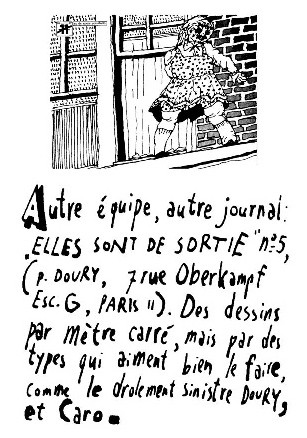 Autre équipe, autre journal:
"ELLES SONT DE SORTIE" n°5,
(P. DOURY, 7 rue Oberkampf
Esc. G, PARIS 11). Des dessins
par mètre carré, mais par des
types qui aiment bien le faire,
comme le drolement sinistre DOURY,
et Caro.